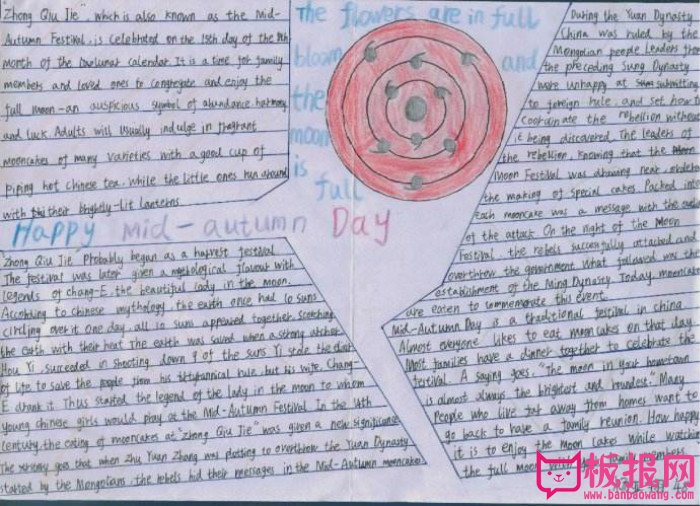 "Zhong Qiu Jie", which is also known as the Mid-
Autumn Festival, is celebrated on the 15th day of the 8th
month of the lunar calendar. It is a time for family
members and loved ones to congregate and enjoy the
full moon – an auspicious symbol of abundance harmony
and luck. Adults will usually indulge in fragrant
mooncakes of many varieties with a good cup of
Piping hot chinese tea. while the little ones run around
with their brightly-lit lanterns
The flowers are in full
bloom and
the
moon
is
full
Happy mid-autumn Day
Zhong Qiu Jie Probably began as a harvest festival
The festival was later given a mythological flavour with
legends of chang-E the beautiful lady in the moon.
According to chinese mythology, the earth once had 10 suns
circling over it One day, all 10 suns appeared together scorching
the earth with their heat The earth was saved when a strong archer
Hou Yi succeeded in shooting down 9 of the suns Yi stole the
of life to save the people from his tyrannical rule, but his wife, Chang-
E drank it. Thus started the legend of the lady in the moon to whom
young chinese girls would pray at the Mid-Autumn Festival In the 14th
century, the eating of mooncakes at "zhong Qiu Jie" was given a new significance
The goes that when Zhu Yuan Zhang was plotting to overthrow the Yuan Dynasty
started by the Mongolians, the rebels hid their messages in the Mid-Autumn mooncakes
During the Yuan Dynasty
China was ruled by the
Mongolian people Leaders from
the preceding Sung Dynasty
were unhappy at submitting
to foreign rule, and set how to
coordinate the rebellion without
it being discovered. The leaders of
the rebellion, knowing that the
Moon Festival was drawing near, ordered
the making of special cakes. Packed into
Each mooncake was a message with the outline
of the attack. On the night of the Moon
Festival, the rebels successfully attacked and
overthrew the government. What followed was the
establishment of the Ming Dynasty. Today, mooncakes
are eaten to commemorate this event.
Mid-Autumn Day is a traditional festival in china
Almost everyone likes to eat mooncakes on that day
Most families have a dinner together to celebrate the
festival. A saying goes, "The moon in your hometown
is almost always the brightest and roundest." Many
People who live far away from homes want to
go back to have a family reunion. How happy
it is to enjoy the Moon cakes while watching
the full moon with family members
板报网
www.banbaowang.com